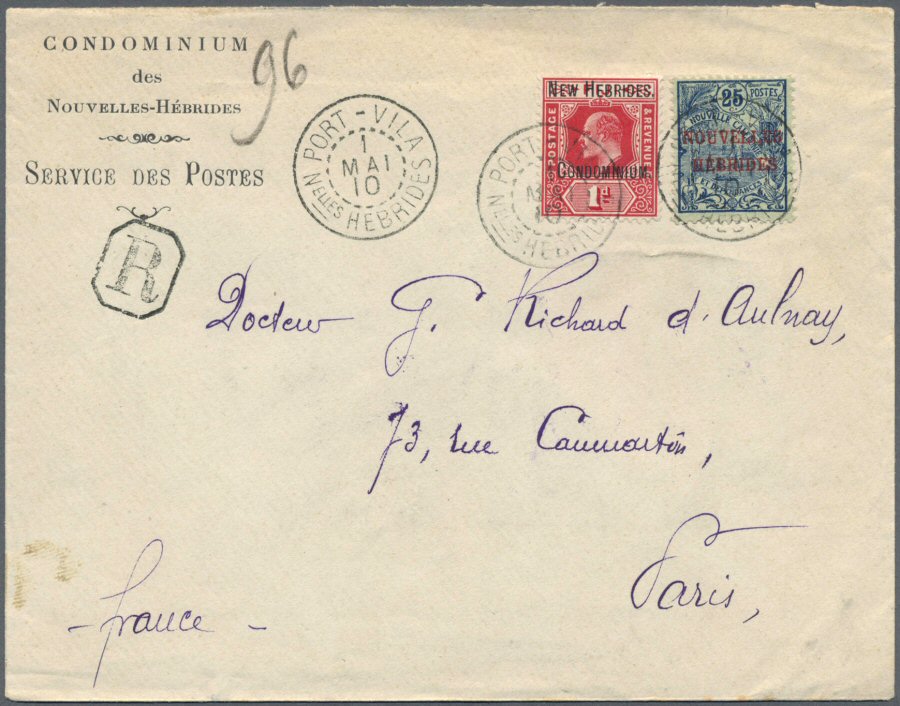 CONDOMINIUM
des
NOUVELLES-HÉBRIDES
SERVICE DES POSTES
96
PORT-VILA
1
MAI
10
Nelles HEBRIDES
R
NEW HEBRIDES.
POSTAGE
& REVENUE
CONDOMINIUM.
1d
PORT
Nelles HEBRIDES
25 POSTES
NOUVELLES
HÉBRIDES
Docteur G. Richard d'Aulnay,
73, rue Caumartin,
Paris,
- france -